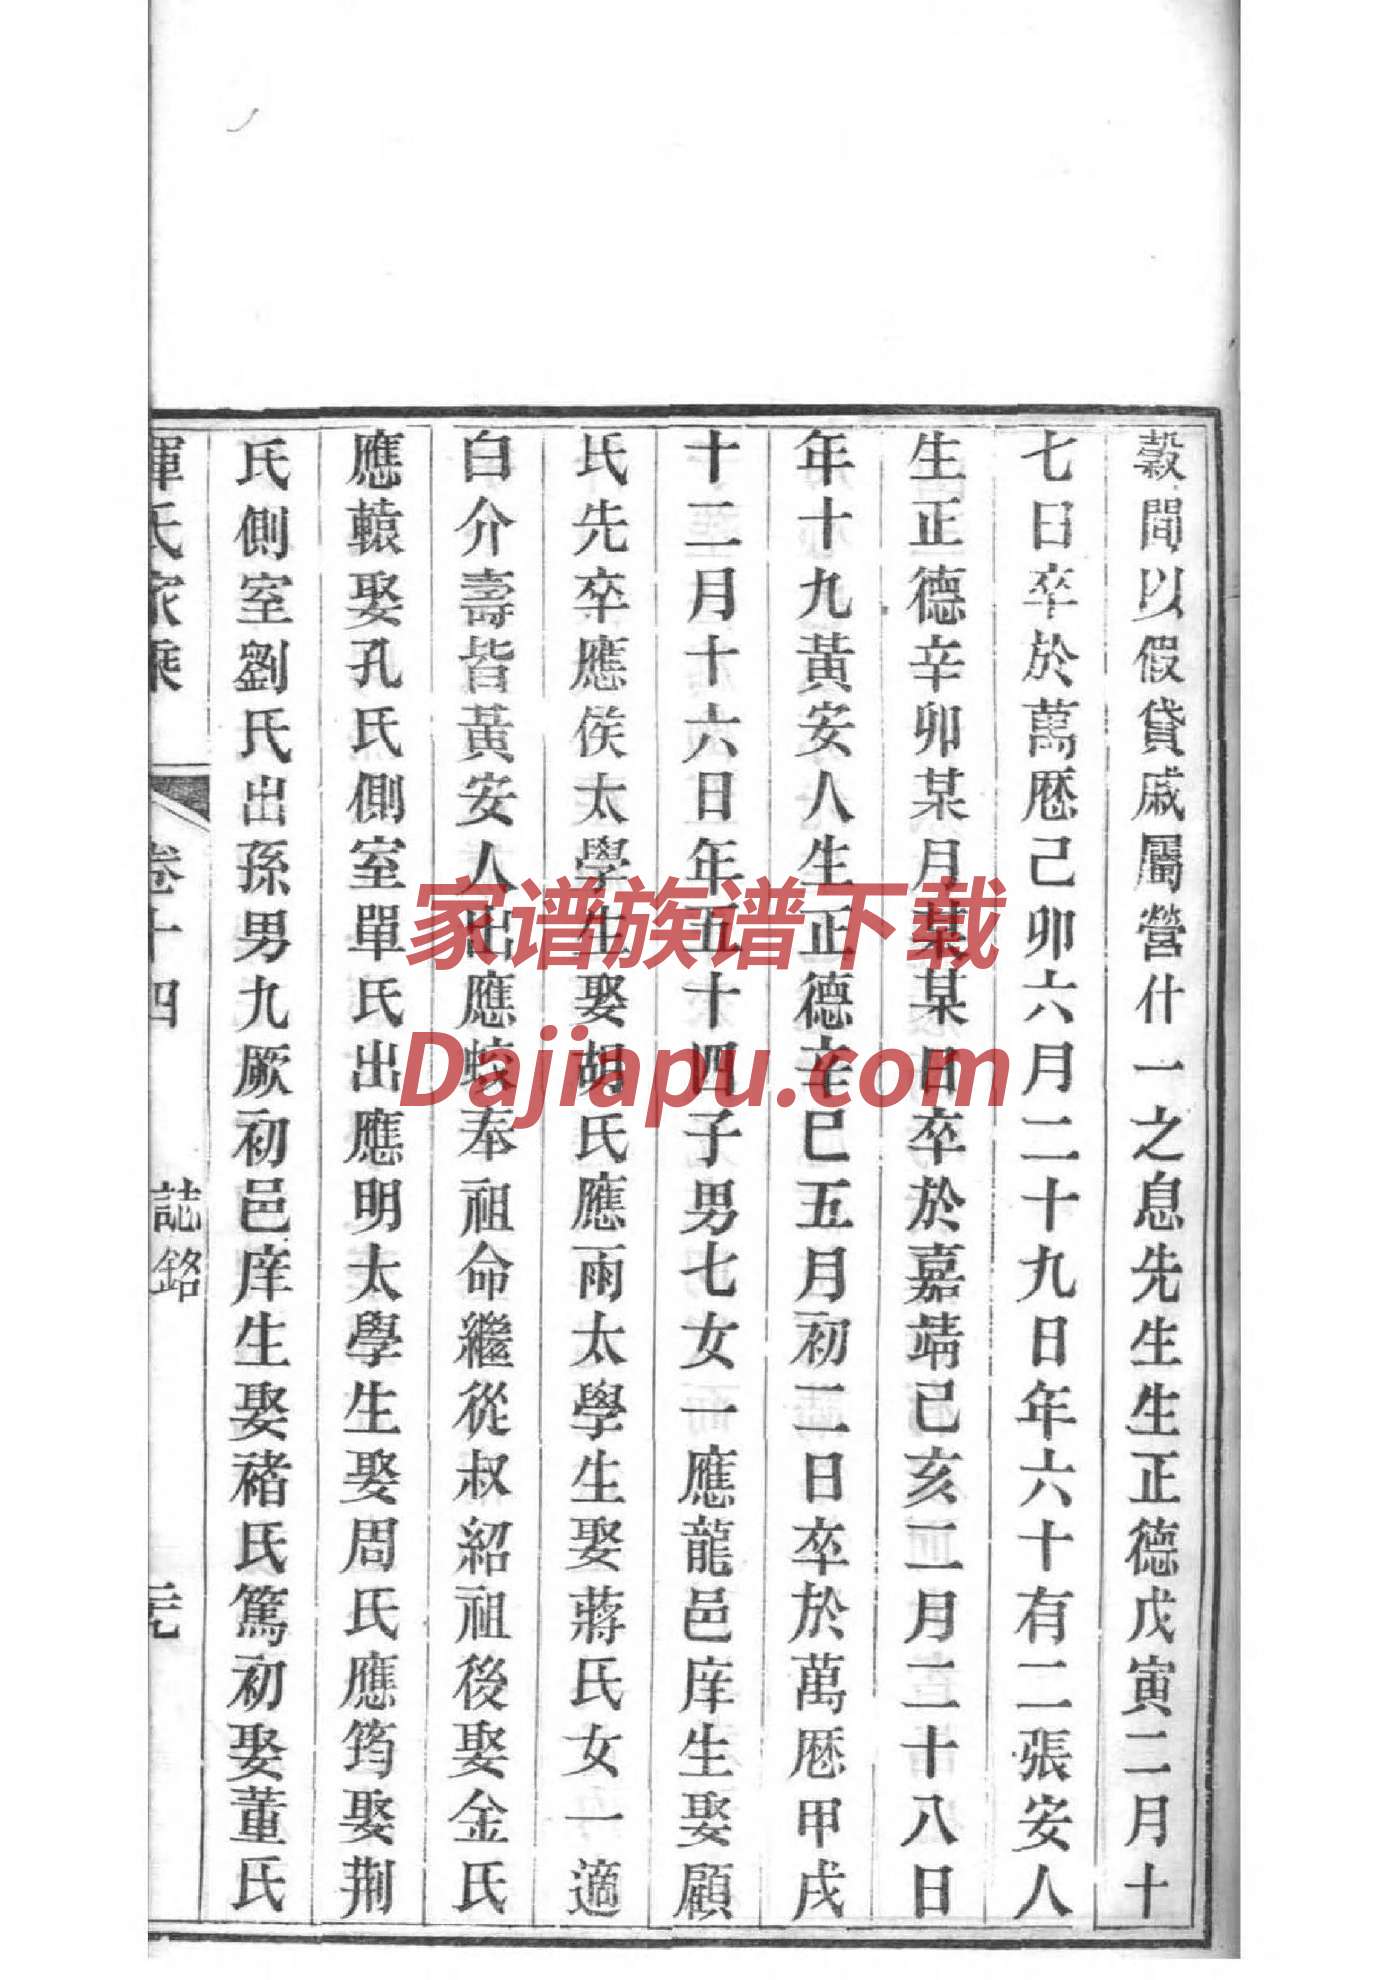 穀間以假貸戚屬營什一之息先生生正德戊寅二月十
七日卒於萬厯己卯六月二十九日年六十有二張安人
生正德辛卯某月某某日卒於嘉靖己亥二月二十八日
年十九黃安人生正德辛巳五月初二日卒於萬厯甲戌
十二月十六日年五十四子男七女一應龍邑庠生娶顧
氏先卒應侯太學生娶胡氏應雨太學生娶蔣氏女一適
白介壽皆黃安人出應蛟奉祖命繼從叔紹祖後娶金氏
應轅娶孔氏側室單氏出應明太學生娶周氏應筠娶荆
氏側室劉氏出孫男九厥初邑庠生娶褚氏篤初娶董氏
惲氏家乘 卷十四 誌銘
家谱族谱下载
Dajiapu.com